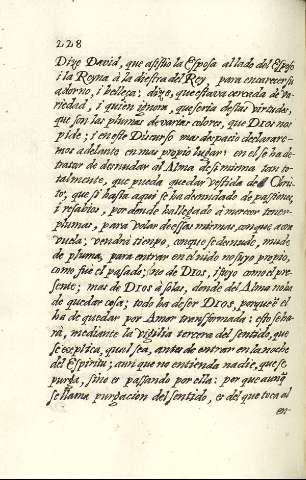 228
Dize David, que asistio la Esposa al lado del Esposo,
i la Reyna à la diestra del Rey, para encarecer su
adorno, i belleza: dize, que estava cercada de va-
riedad, i quien ignora, que seria destas virtudes,
que son las plumas de varias colores, que Dios nos
pide; i en este Discurso mas de espacio declarare-
mos adelante en mas propio lugar: en el se ha de
tratar de desnudar al Alma de si misma tan to-
talmente, que pueda quedar vestida de Chris-
to; que si hasta aqui se ha desnudado de pasiones,
i resabios, por donde ha llegado à merecer tener
plumas, para volar de estas mismas, con que aora
vuela; vendrà tiempo, con que se desnude, mude
de pluma, para entrar en el nido no suyo propio,
como fue el pasado; sino de Dios, i suyo como el pre-
sente; mas de Dios à solas, donde del Alma no ha
de quedar cosa; todo ha de ser Dios, porque en èl
ha de quedar por Amor transformada: esto se ha-
rà, mediante la vigilia tercera del sentido, que
se explica, qual sea, antes de entrar en la noche
del Espiritu; aunque no entienda nadie, que se
purga, sino es passando por ella: por que aunq̃
se llama purgacion del sentido, es del que toca al
en-